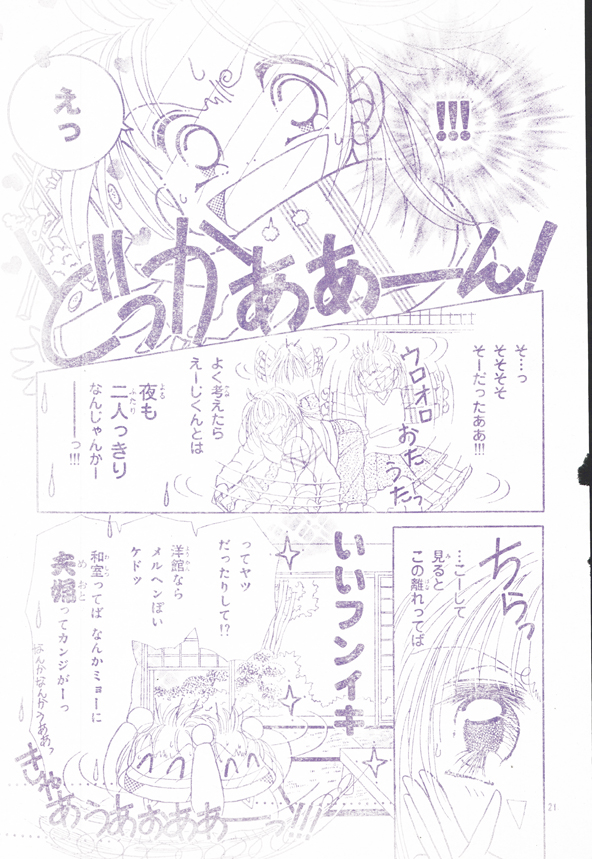 !!!
えっ
どっかああーん!
そ…っ
そそそそ
そーだったああ!!!
ウロオロ
おたっ
うたっ
よく考えたら
えーじくんとは
夜も
二人っきり
なんじゃんかー
――っ!!!
ちらっ
…こーして
見ると
この離れってば
いいフンイキ
ってヤツ
だったりして!?
洋館なら
メルヘンぽい
ケドッ
和室ってば なんかミョーに
夫婦ってカンジがーっ
きゃあうあおああーっ!!!
21